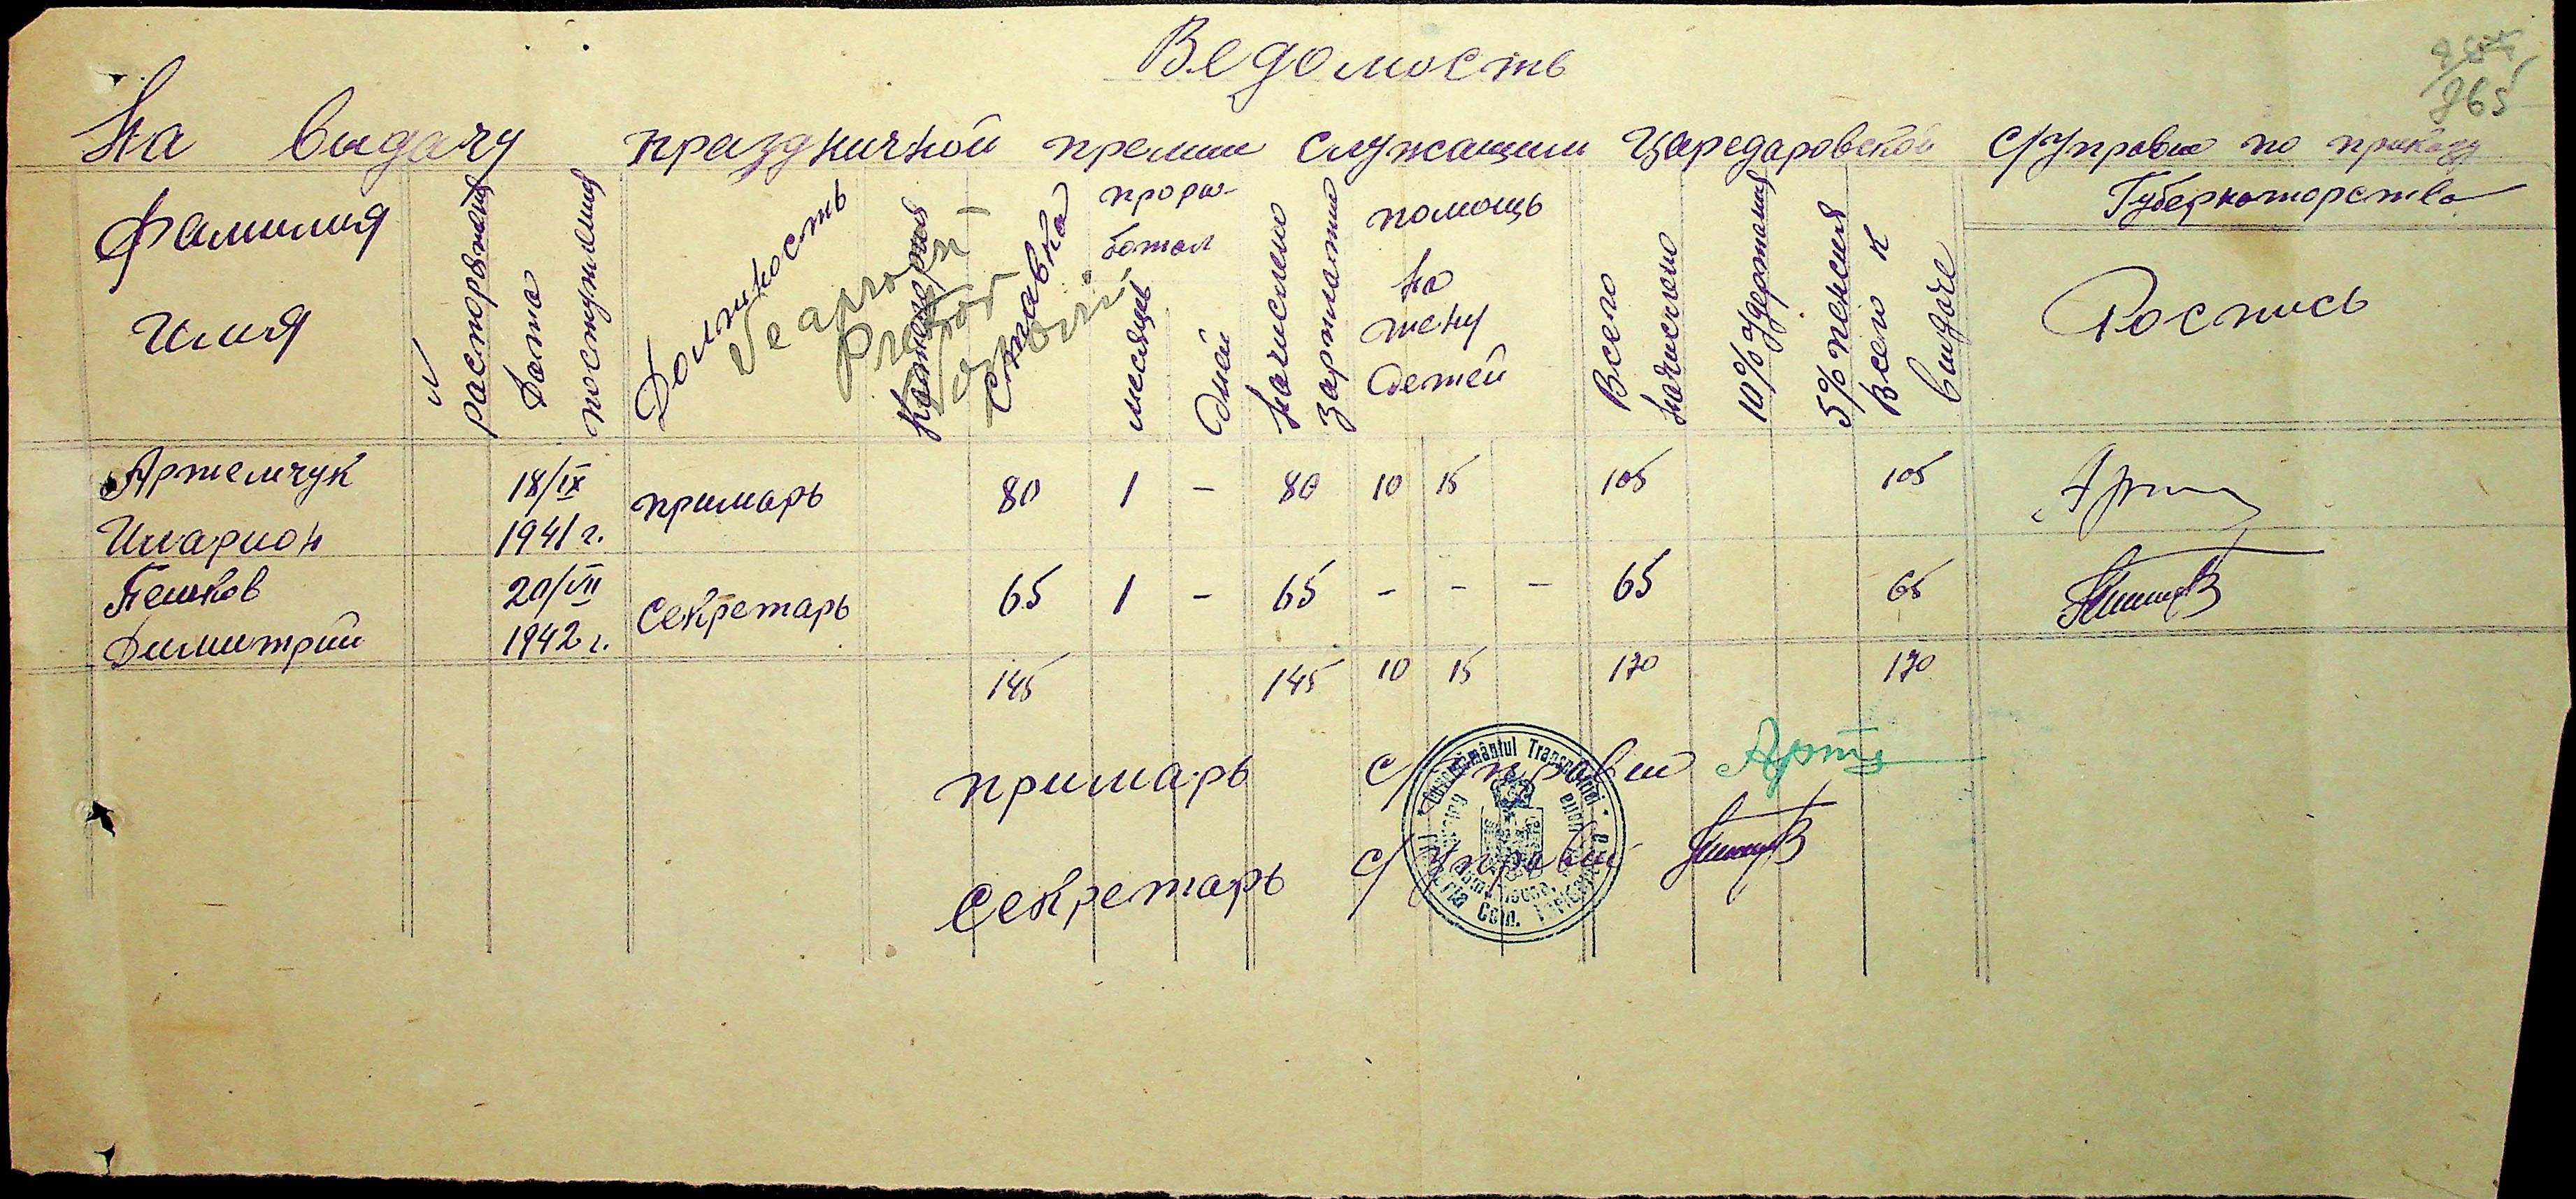 865
Ведомость
На выдачу праздничной премии служащим Царедаровской с/управы по приказу
Губернаторства
Фамилия
Имя
№
распоряжения
Дата
поступления
Должность
Категория
Ставка
прора-
ботал
месяцы
дней
Начислено
зарплата
помощь
на
жену
детей
Всего
начислено
10% удержания
5% пенсия
Всего к
выдаче
Роспись
Se aprobă
Pretor
Артемчук
Иларион
18/IX
1941 г.
примарь
80 1 - 80 10 15 105 105
Пешков
Димитрий
20/VII
1942 г.
Секретарь
65 1 - 65 - - - 65 65
145 145 10 15 170 170
примарь с/управы
Секретарь с/управы
Guvernământul Transnistriei
Com.